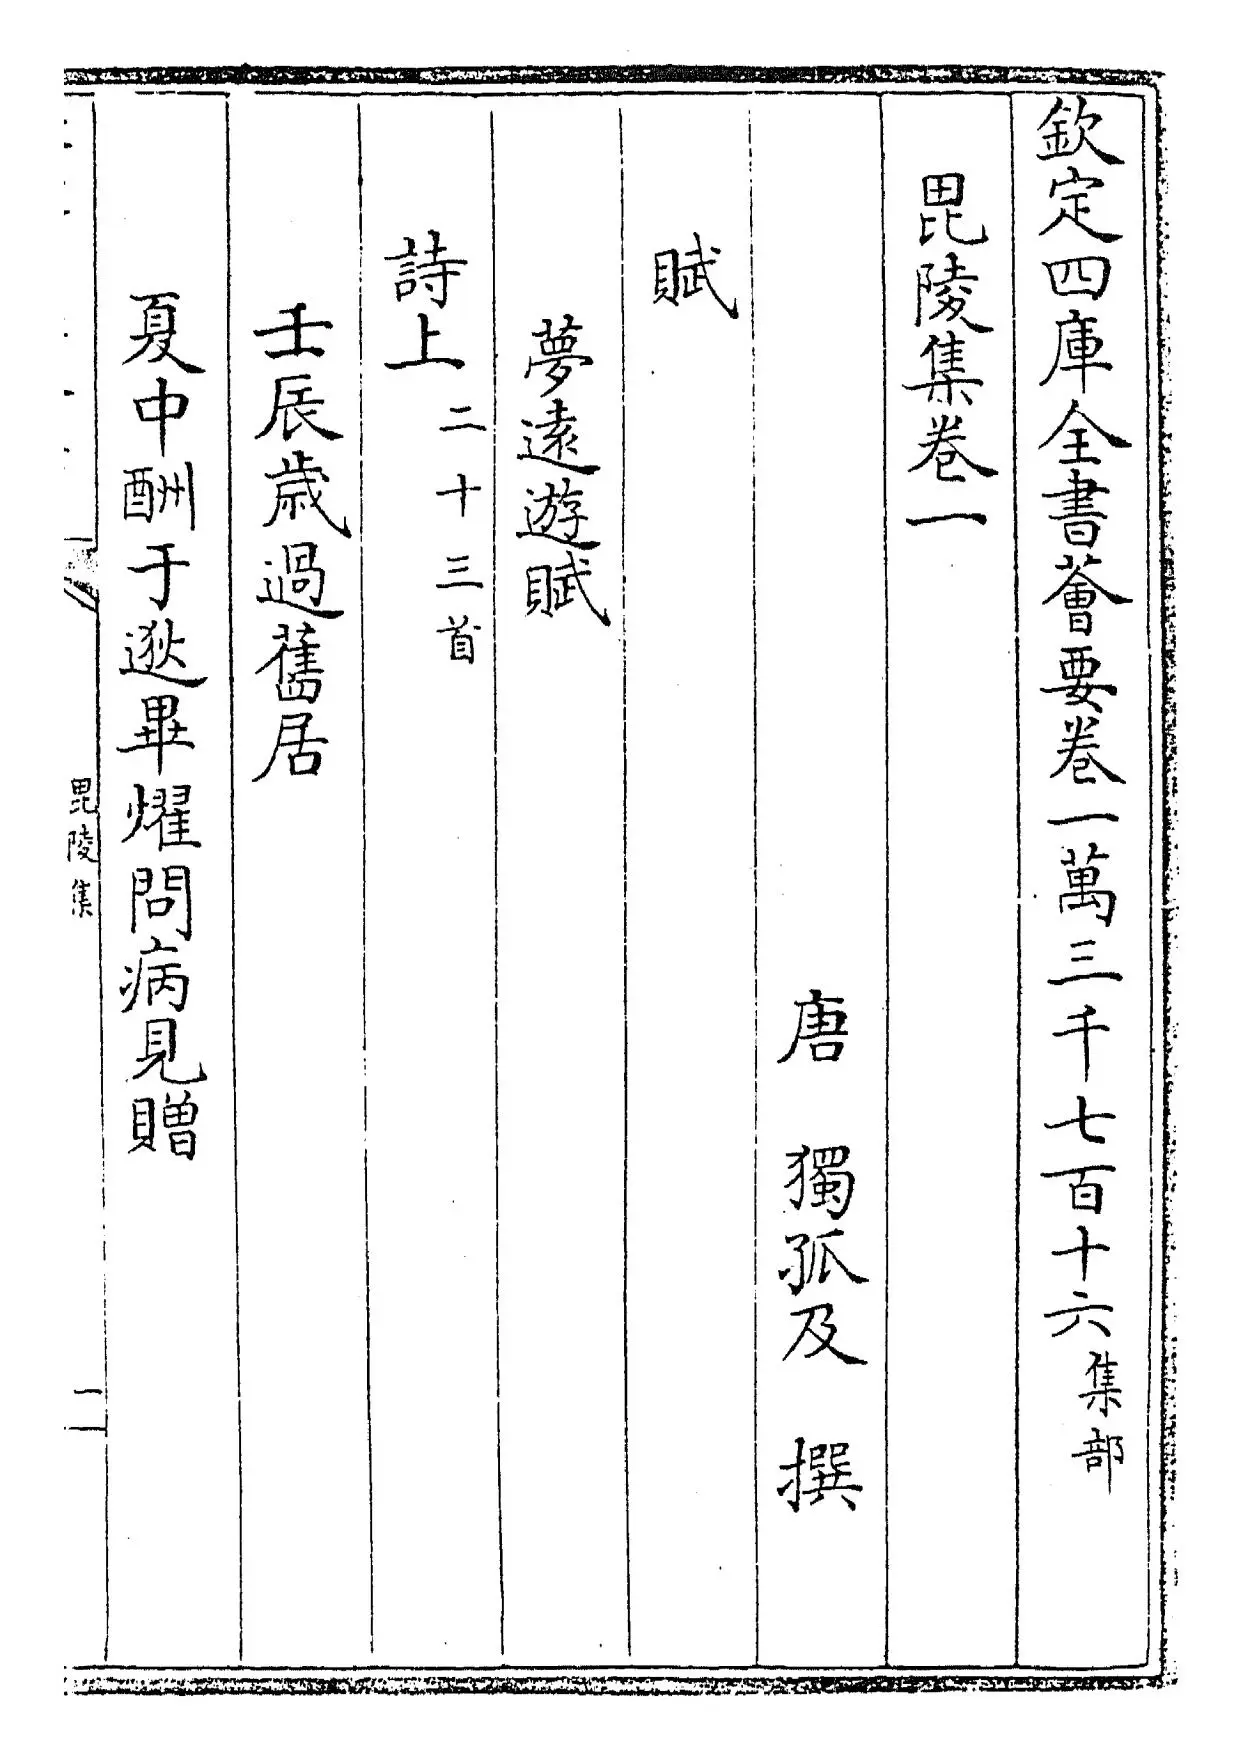 欽定四庫全書薈要卷一萬三千七百十六集部
毘陵集卷一
唐 獨孤及 撰
賦
夢遠遊賦
詩上二十三首
壬辰歲過舊居
夏中酬于逖畢燿問病見贈
毘陵集 一